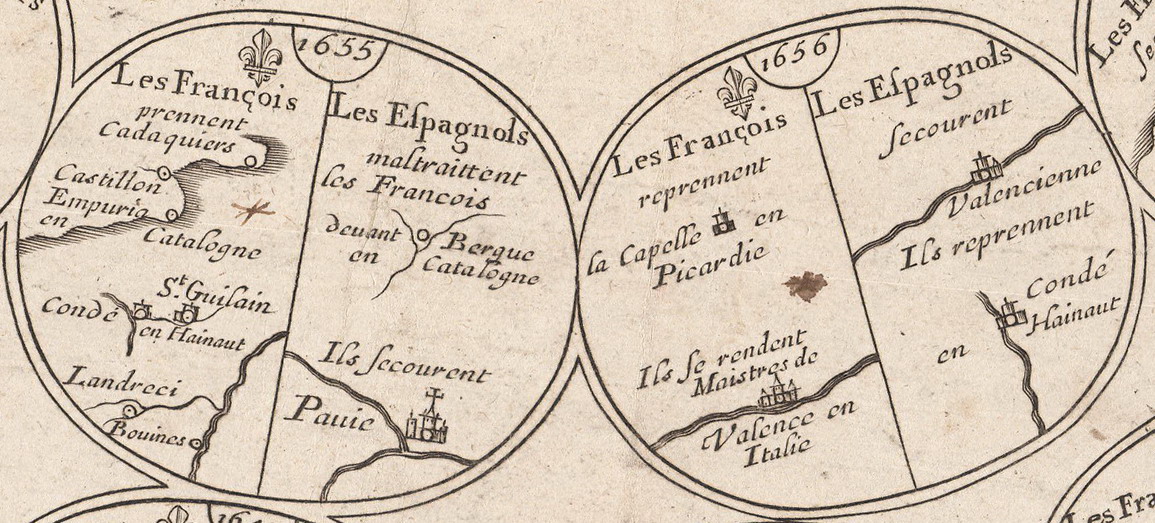 1655
Les François
prennent
Cadaquiers
Castillon
Empurig
en
Catalogne
Condé
St. Guilain
en Hainaut
Landreci
Bouines
Les Eſpagnols
maltraittent
les Francois
deuant
Bergue
en
Catalogne
Ils ſecourent
Pauie
1656
Les François
reprennent
la Capelle en
Picardie
Ils ſe rendent
Maistres de
Valence en
Italie
Les Eſpagnols
ſecourent
Valencienne
Ils reprennent
Condé
en Hainaut
Les Fra